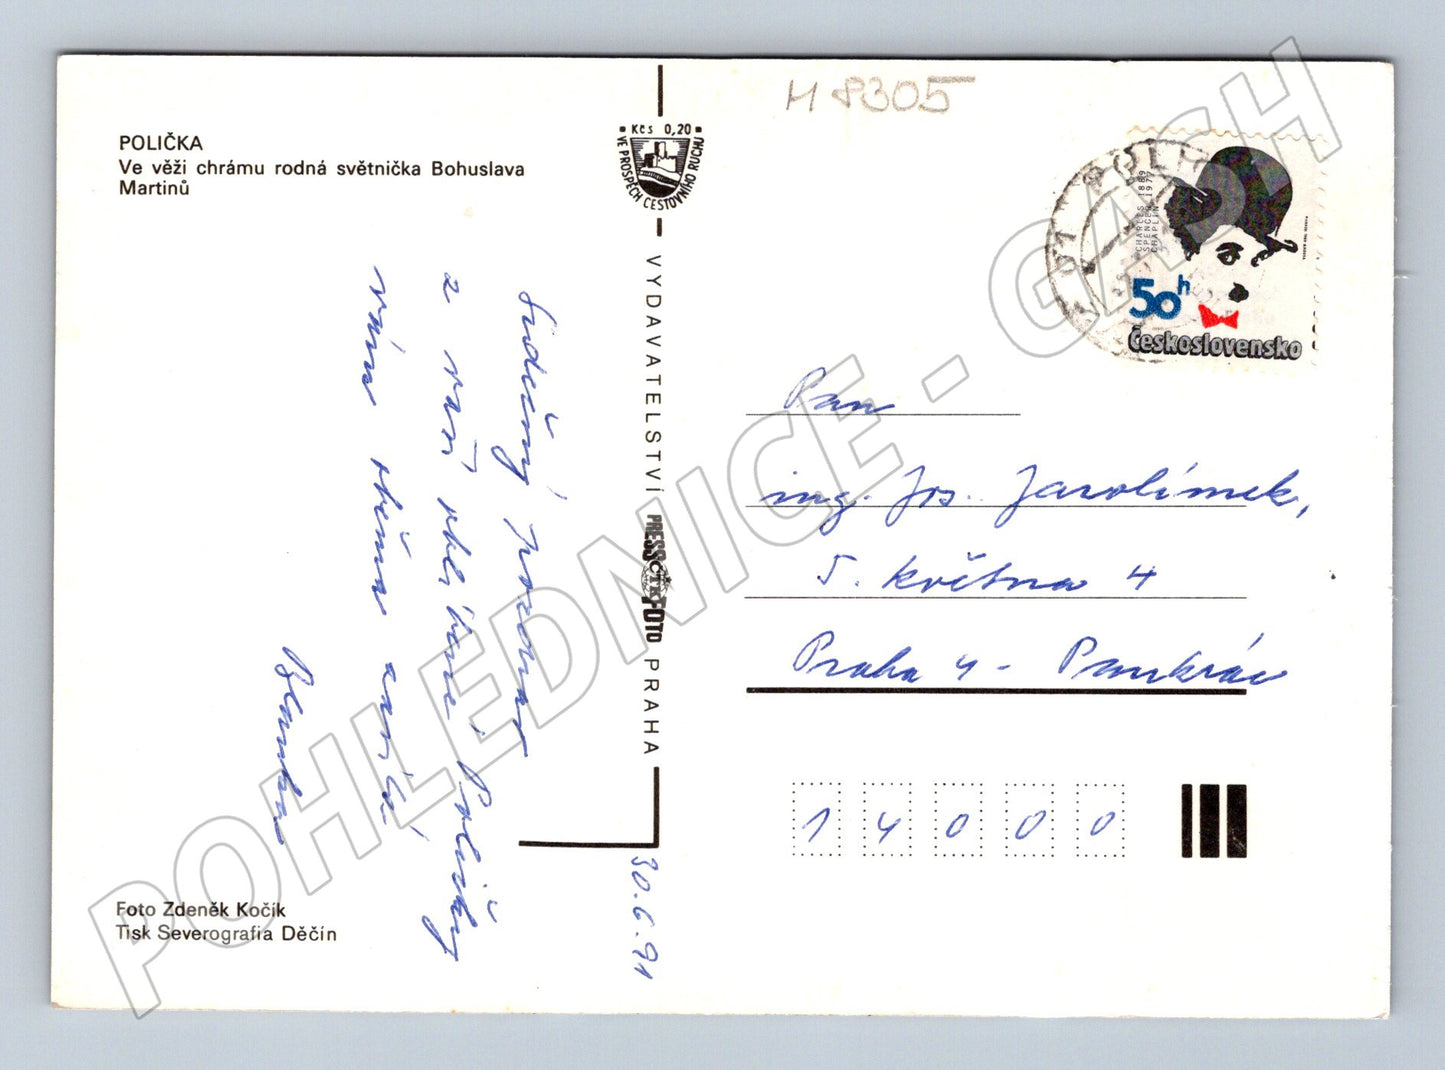 POLIČKA
Ve věži chrámu rodná světnička Bohuslava
Martinů
M 8305
Kčs 0,20
VE PROSPĚCH CESTOVNÍHO RUCHU
VYDAVATELSTVÍ PRESSFOTO PRAHA
ČTK
Srdečný pozdrav
z vaší oblíbené Poličky
vám všem zasílá
30.6.91
CHARLES 1889
SPENCER 1977
CHAPLIN
50h
Československo
Pan
ing. Jos. Jarolímek,
5. května 4
Praha 4 - Pankrác
14000
Foto Zdeněk Kočík
Tisk Severografia Děčín
POHLEDNICE - GASH